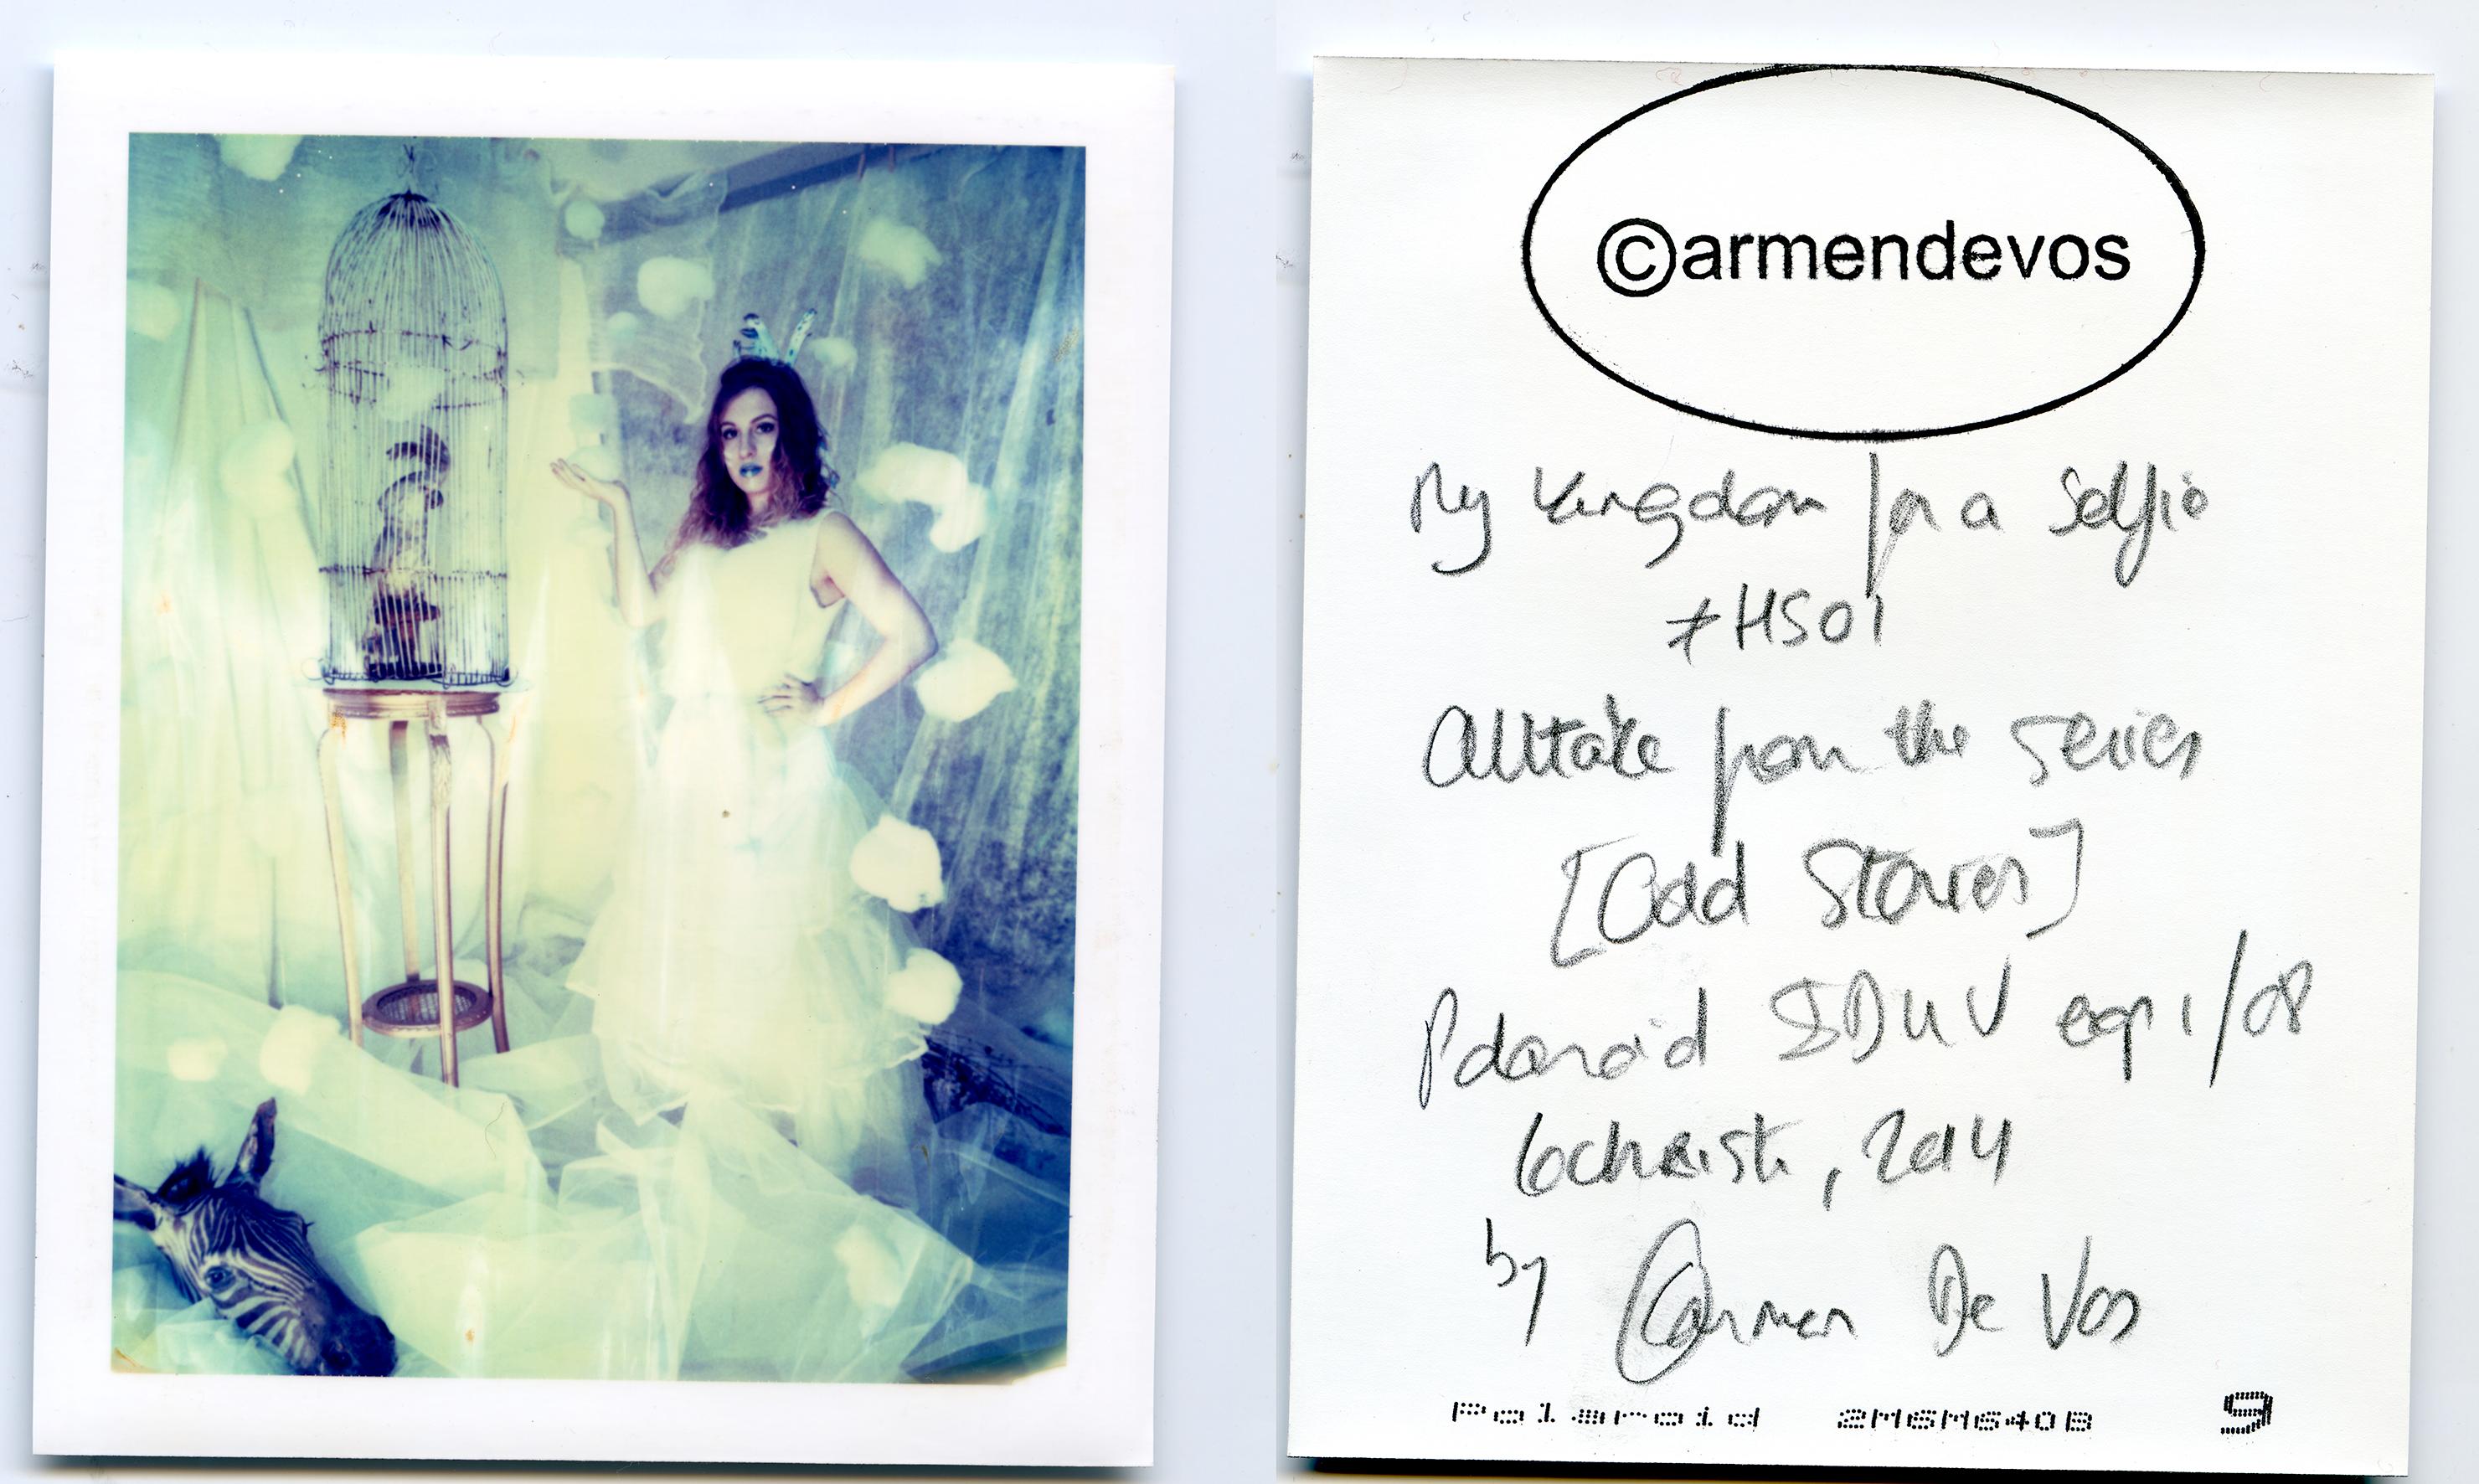 ©armendevos
My Kingdom for a Selfie
#HS01
Outtake from the series
[Odd Stories]
Polaroid IDUV exp 1/08
Lochristi, 2014
by Carmen De Vos
Polaroid 2M6M640B 9